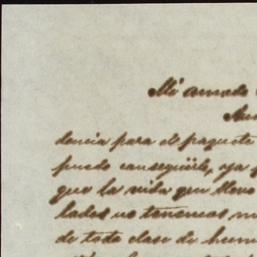 Mi amado
Aun
dencia para el paquete
puedo conseguirlo, oja
que la vida que llevo
lados no tenemos m
de toda clase de hum